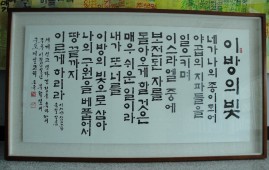 이방의 빛
네가 나의 종이 되어
야곱의 지파들을
일으키며
이스라엘 중에
보전된 자를
돌아오게 할 것은
매우 쉬운 일이라
내가 또 너를
이방의 빛으로 삼아
나의 구원을 베풀어서
땅 끝까지
이르게 하리라